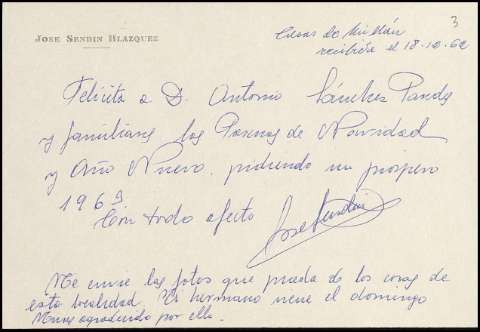 3
JOSE SENDIN BLAZQUEZ
Casas de Millán
recibida el 18-12-62
Felicita a D. Antonio Sánchez Paredes
y familiares las Pascuas de Navidad
y Año Nuevo, pidiendo un prospero
1963.
Con todo afecto
Jose Sendin
Me envie las fotos que pueda de las cosas de
esta localidad. Mi hermano viene el domingo
Muy agradecido por ello.